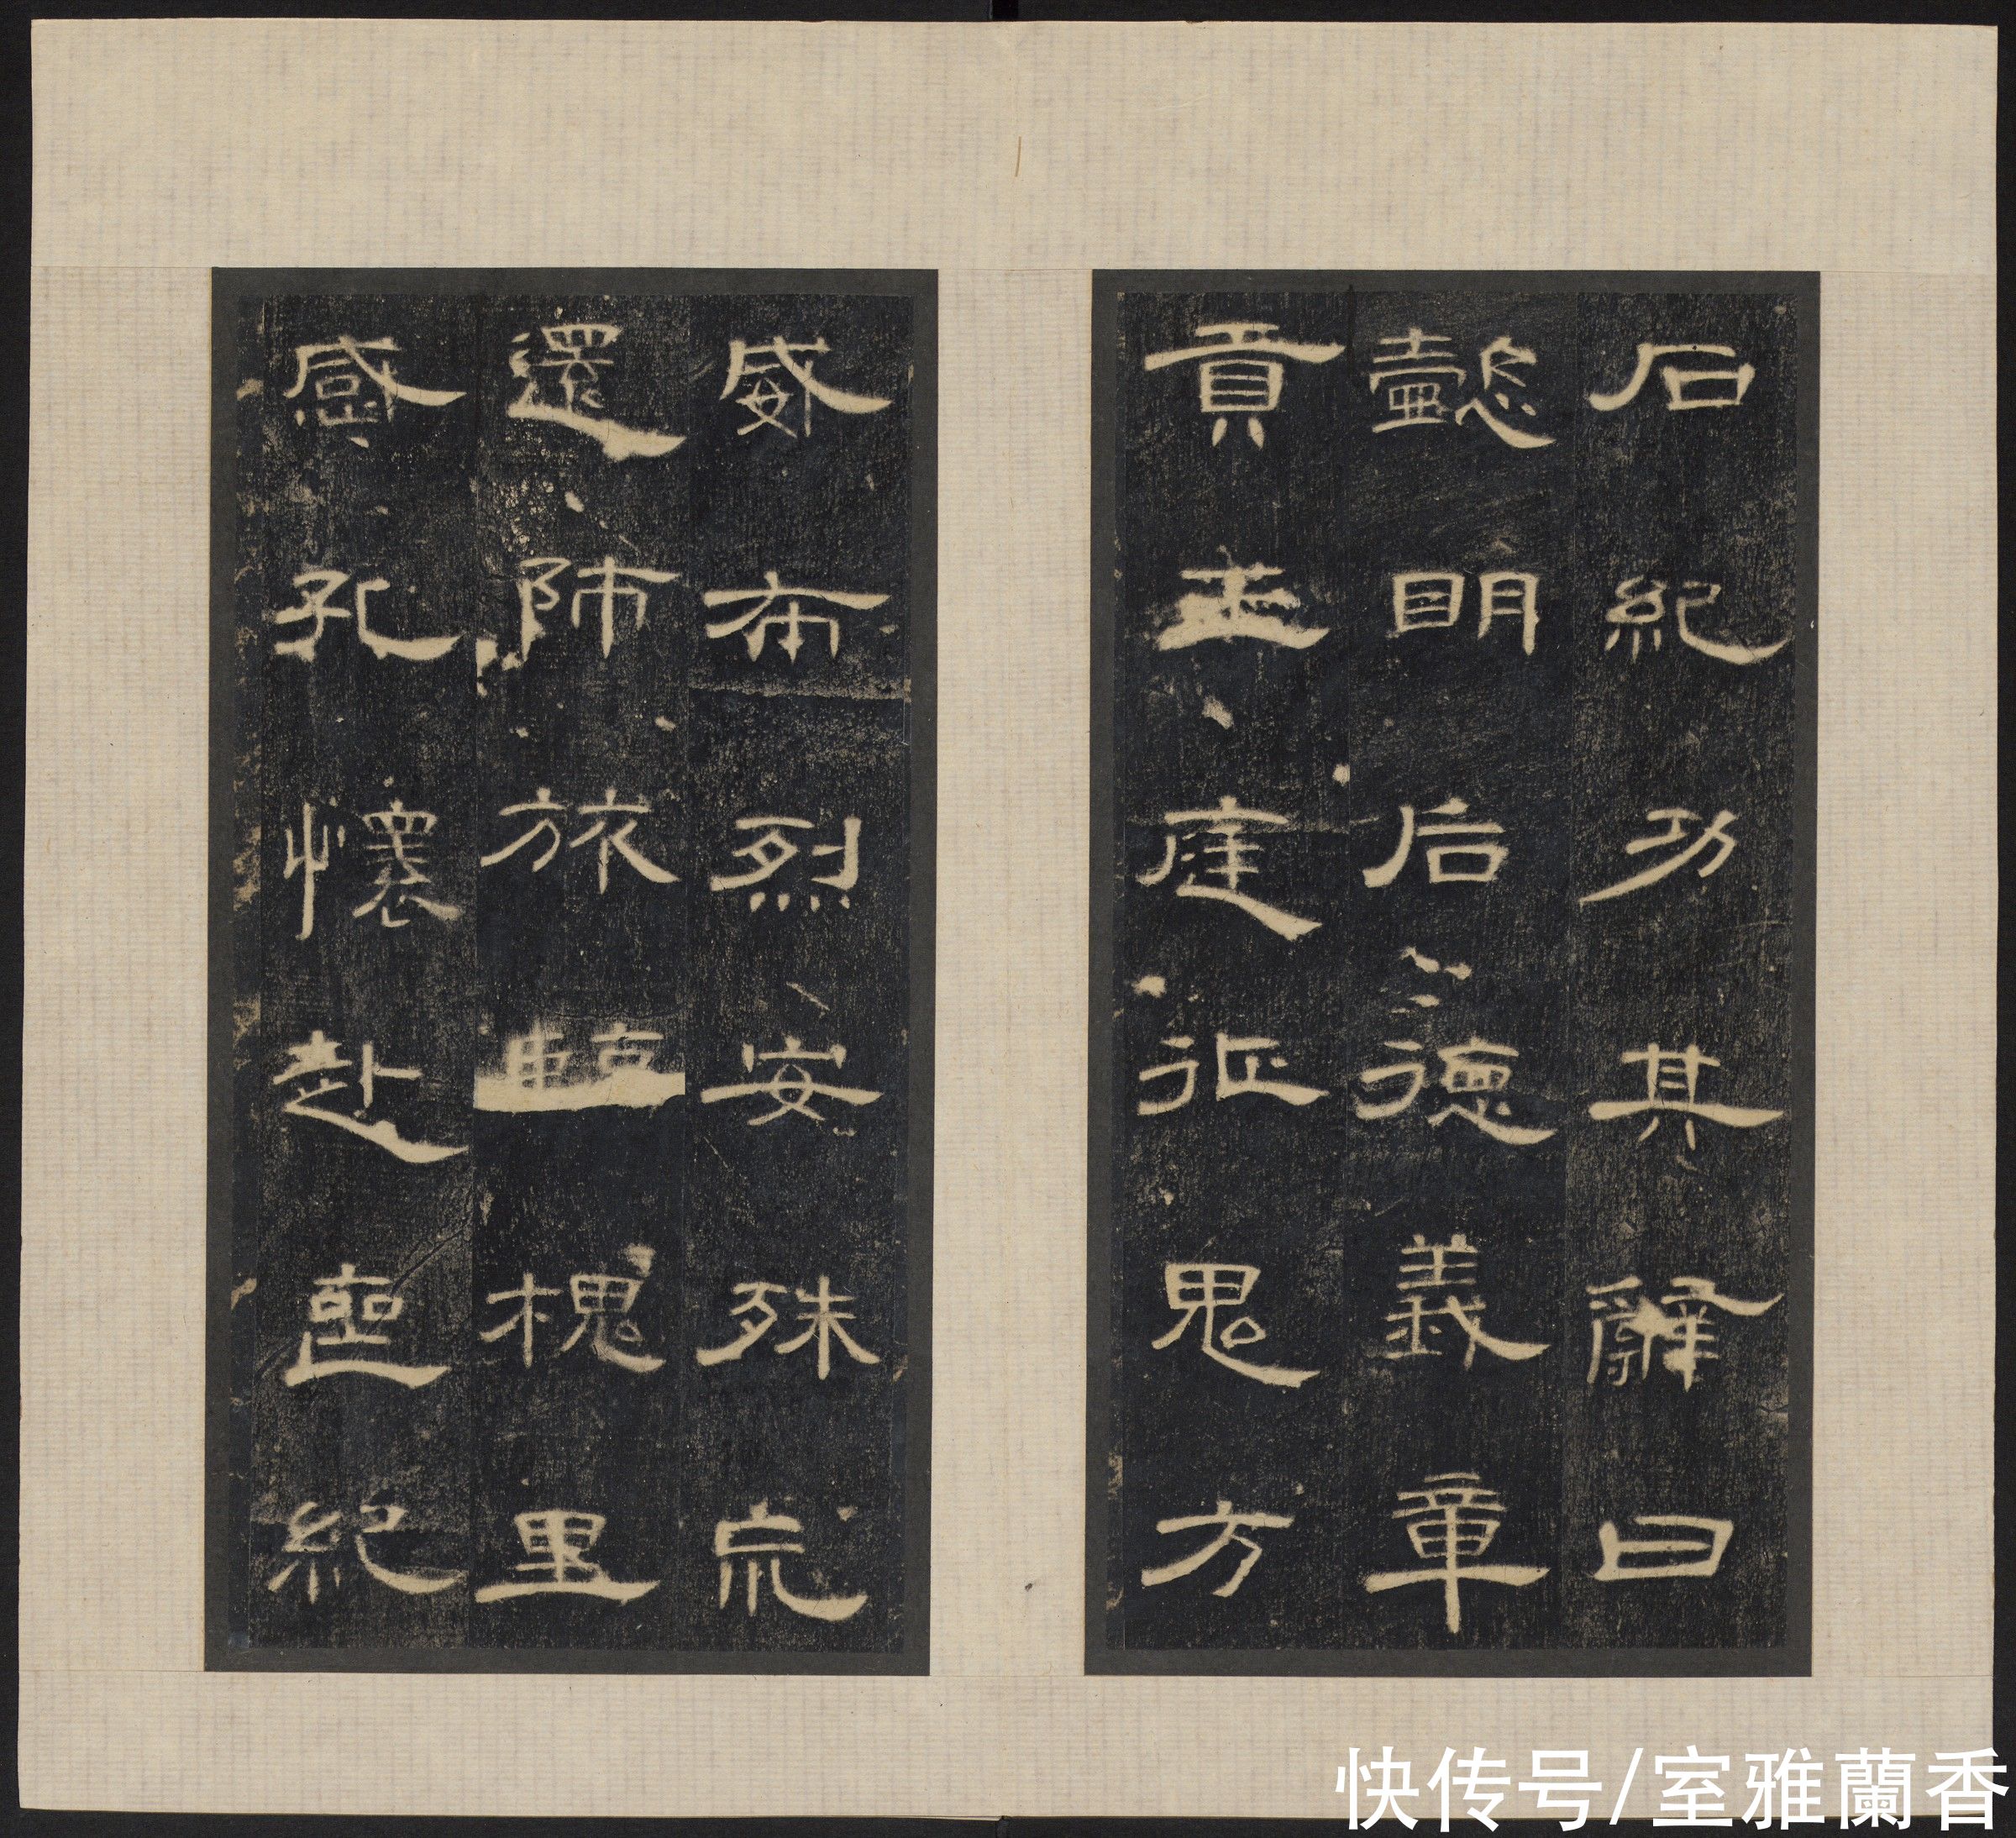 石紀功其辭曰
懿明后德義章
貢王庭征鬼方
威布烈安殊荒
還師旅臨槐里
感孔懷赴喪紀
快传号/室雅蘭香